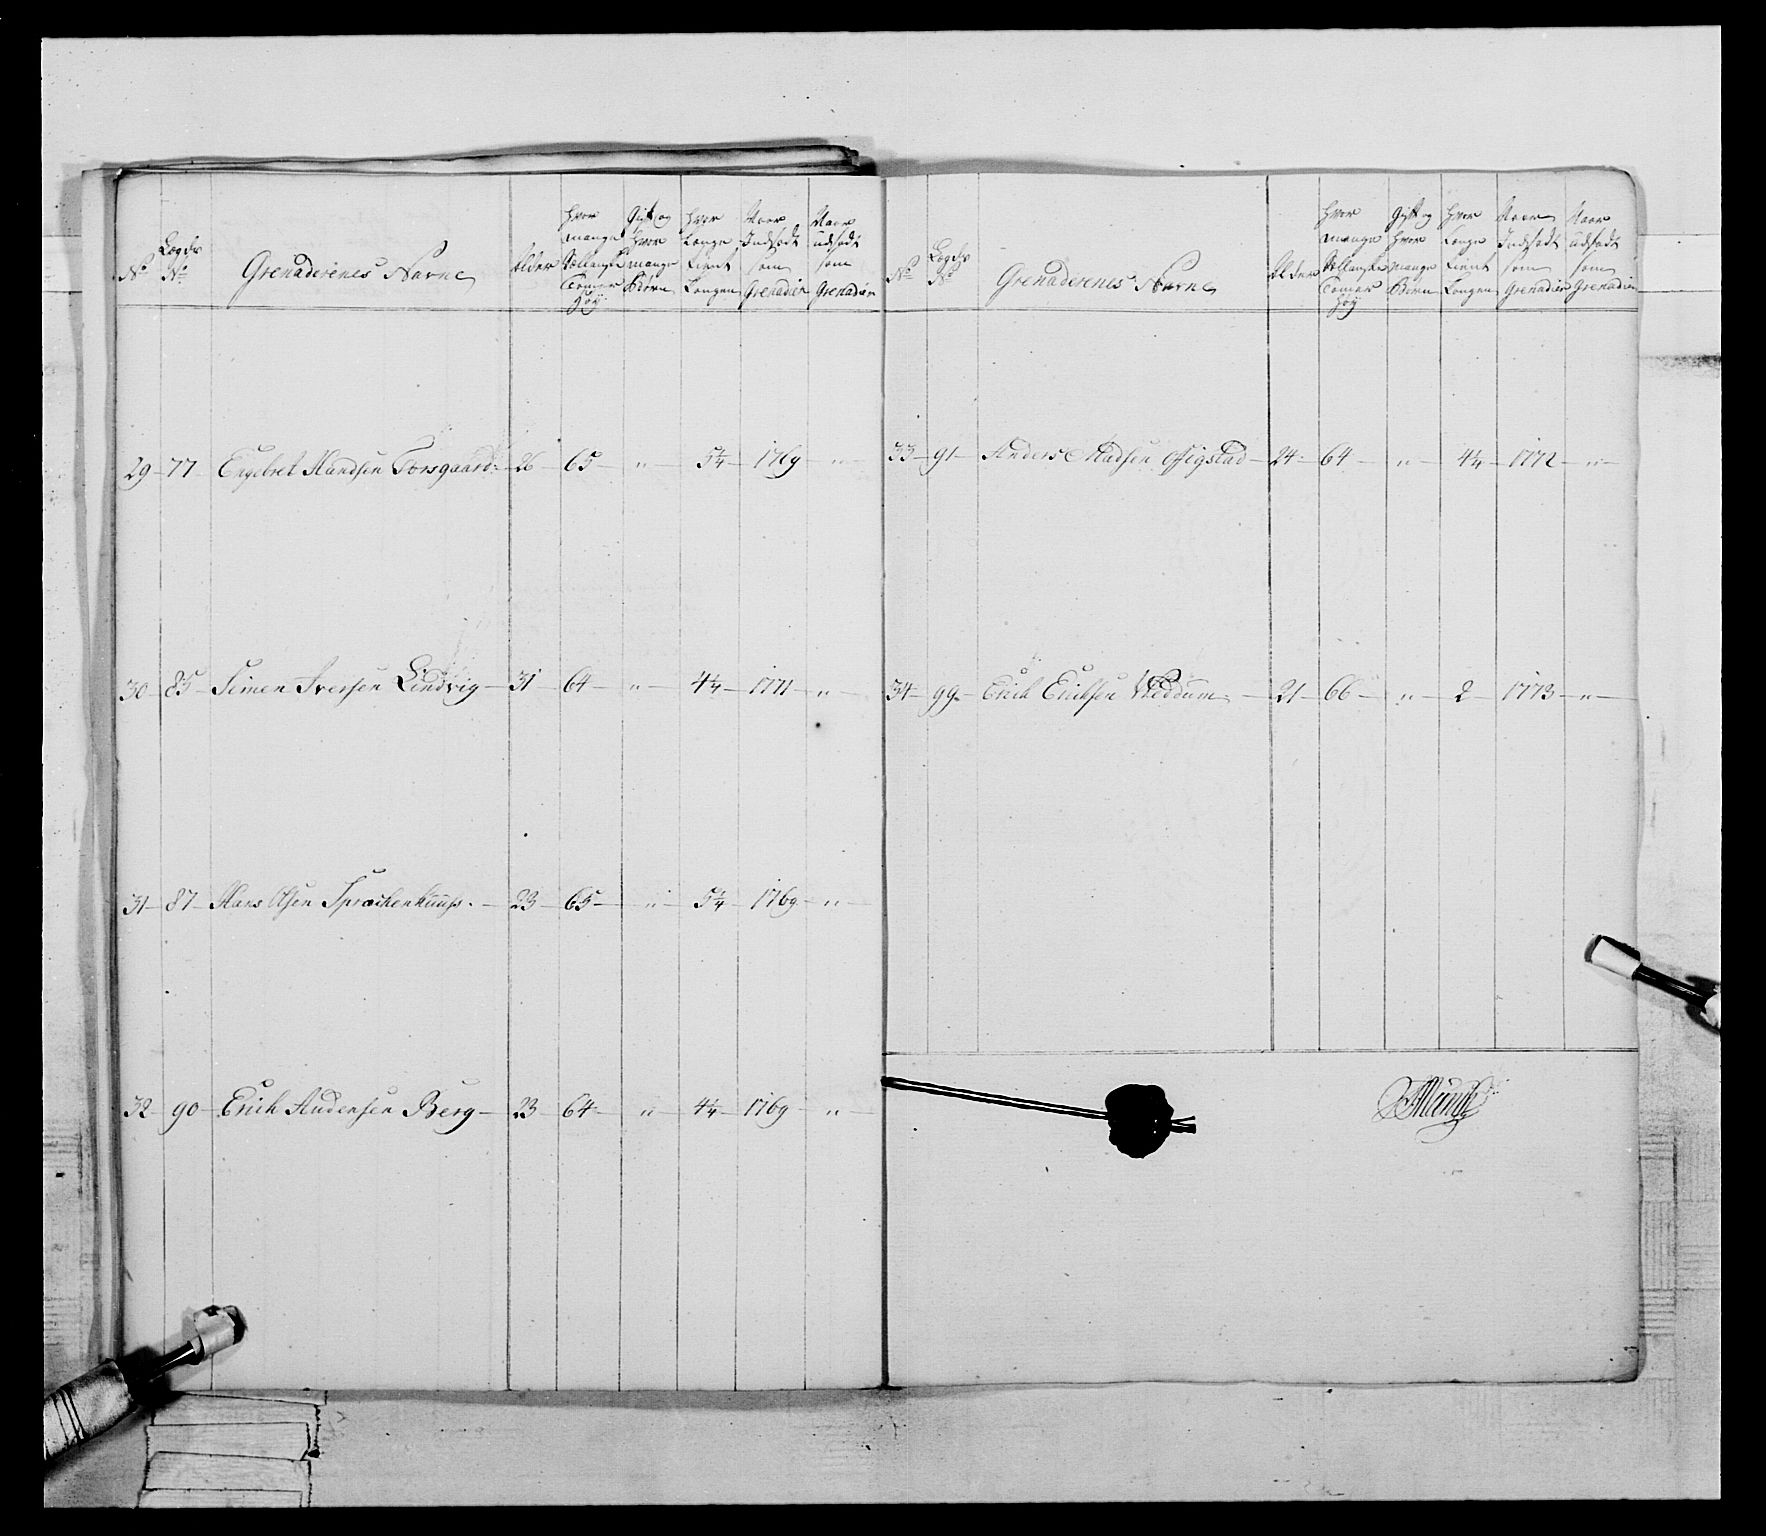 No
Lægds No
Grenaderenes Navne
Alder
hvor mange Sællandske Tomer høy
Gift og hvor mange Børn
hvor Længe tient Kongen
Naar Indsadt som Grenadier
Naar udsadt som Grenadier
29 - 77 - Engebret Handsen Torsgaard - 26 - 65 - " - 5¼ - 1769 - "
30 - 85 - Simen Iversen Lindvig - 31 - 64 - " - 4¼ - 1771 - "
31 - 87 - Hans Olsen Sprackenhuuss - 23 - 65 - " - 5¼ - 1769 - " -
32 - 90 - Erich Andersen Berg - 23 - 64 - " - 4¼ - 1769 - " -
No
Lægds No
Grenaderenes Navne
Alder
hvor mange Sællandske Tomer høy
Gift og hvor mange Børn
hvor Længe tient Kongen
Naar Indsadt som Grenadier
Naar udsadt som Grenadier
33 - 91 - Anders Madsen Sigstad - 24 - 64 - " - 4¼ - 1772 - " -
34 - 99 - Erich Erichsen Weddum - 21 - 66 - " - 2 - 1773 - " -